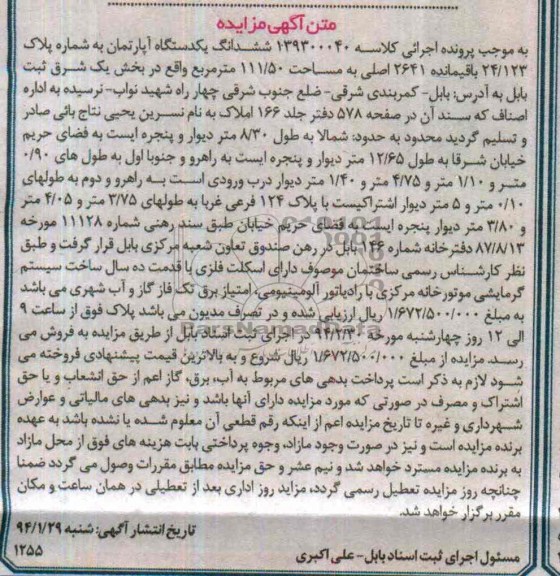 متن آگهی مزایده
به موجب پرونده اجرائی کلاسه ۱۳۹۳۰۰۰۴۰ ششدانگ یکدستگاه آپارتمان به شماره پلاک
۲۴/۱۲۳ باقیمانده ۲۶۴۱ اصلی به مساحت ۱۱۱/۵۰ مترمربع واقع در بخش یک شرق ثبت
بابل به آدرس: بابل- کمربندی شرقی- ضلع جنوب شرقی چهار راه شهید نواب- نرسیده به اداره
اصناف که سند آن در صفحه ۵۷۸ دفتر جلد ۱۶۶ املاک به نام نسرین یحیی نتاج بائی صادر
و تسلیم گردید محدود به حدود: شمالا به طول ۸/۳۰ متر دیوار و پنجره ایست به فضای حریم
خیابان شرقا به طول ۱۲/۶۵ متر دیوار و پنجره ایست به راهرو و جنوبا اول به طول های ۰/۹۰
متر و ۱/۱۰ متر و ۴/۷۵ متر و ۱/۴۰ متر دیوار درب ورودی است به راهرو و دوم به طولهای
۰/۱۰ متر و ۵ متر دیوار اشتراکیست با پلاک ۱۲۴ فرعی غربا به طولهای ۳/۷۵ متر و ۴/۰۵ متر
و ۳/۸۰ متر دیوار پنجره ایست به فضای حریم خیابان طبق سند رهنی شماره ۱۱۱۲۸ مورخه
۸۷/۸/۱۳ دفترخانه شماره ۱۴۶ بابل در رهن صندوق تعاون شعبه مرکزی بابل قرار گرفت و طبق
نظر کارشناس رسمی ساختمان موصوف دارای اسکلت فلزی با قدمت ده سال ساخت سیستم
گرمایشی موتورخانه مرکزی با رادیاتور آلومینیومی، امتیاز برق تک فاز گاز و آب شهری می باشد
به مبلغ ۱/۶۷۲/۵۰۰/۰۰۰ ریال ارزیابی شده و در تصرف مدیون می باشد پلاک فوق از ساعت ۹
الی ۱۲ روز چهارشنبه مورخه ۹۴/۲/۳۰ در اجرای ثبت اسناد بابل از طریق مزایده به فروش می
رسد. مزایده از مبلغ ۱/۶۷۲/۵۰۰/۰۰۰ ریال شروع و به بالاترین قیمت پیشنهادی فروخته می
شود لازم به ذکر است پرداخت بدهی های مربوط به آب، برق، گاز اعم از حق انشعاب و یا حق
اشتراک و مصرف در صورتی که مورد مزایده دارای آنها باشد و نیز بدهی های مالیاتی و عوارض
شهرداری و غیره تا تاریخ مزایده اعم از اینکه رقم قطعی آن معلوم شده یا نشده باشد به عهده
برنده مزایده است و نیز در صورت وجود مازاد، وجوه پرداختی بابت هزینه های فوق از محل مازاد
به برنده مزایده مسترد خواهد شد و نیم عشر و حق مزایده مطابق مقررات وصول می گردد ضمنا
چنانچه روز مزایده تعطیل رسمی گردد، مزاید روز اداری بعد از تعطیلی در همان ساعت و مکان
مقرر برگزار خواهد شد.
تاریخ انتشار آگهی: شنبه ۹۴/۱/۲۹
مسئول اجرای ثبت اسناد بابل- علی اکبری
۱۲۵۵